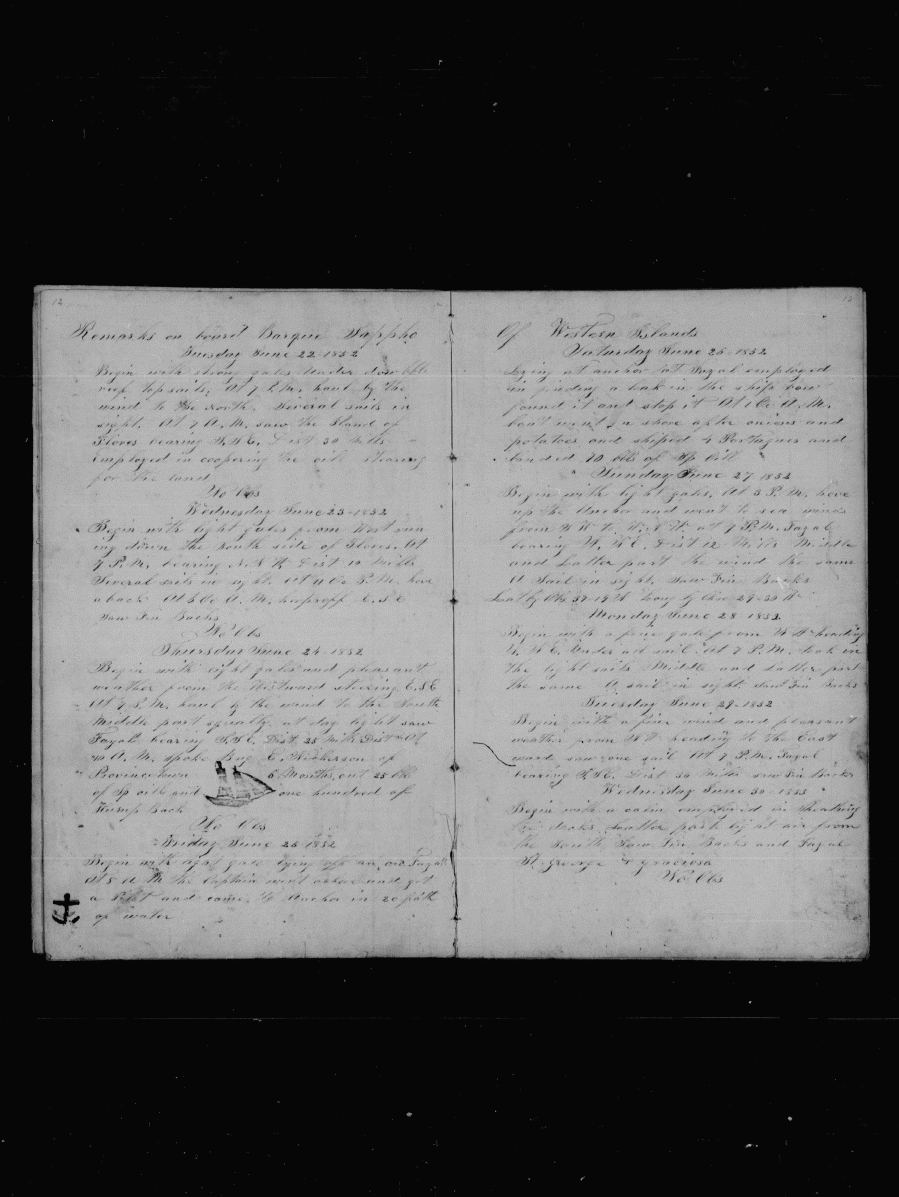 12
Remarks on board Barque Sappho
Tuesday June 22-1852
Begin with strong gales under dow bble
reef topsails. At 7 P.M. haul by the
wind to the North. Several sails in
sight. At 7 A.M. saw the Iland of
Floros bearing S.S.E. Dist 30 Mills
Employed in coopering the oill stearing
for the land
No Obs
Wednesday June 23-1852
Begin with light gales from West run
ing down the South side of Flores. At
7 P.M. bearing N.N.W. Dist 10 Mills
Several sails in sight. At 11 Oc P.M. hove
aback At 3 Oc A.M. kepoff E.S.E
Saw Fin Backs
No Obs
Thursday June 24-1852
Begin with light gales and pleasant
weather from the Westward stearing E.S.E
At 7 P.M. haul by the wind to the South
Middle part squally. at day light saw
Fayal bearing S.S.E. Dist. 25 Mills At
A.M. spoke Brig E. Nickerson of
Provincetown 5 Months out 25 bbls
of Sp oill and one hundred of
Hump Back
No Obs
Friday June 25 1852
Begin with light gale lying off an on Fayall
At 8 A.M the Captain went ashore and got
a Pilot and came to Anchor in 20 fath
of water
12
Of Western Islands
Saturday June 26-1852
Laying at anchor at Fayal employed
in finding a leak in the ships bow
found it and stop it At 1 Oc A.M.
boat went on shore after onions and
potatoes and shiped 4 Portagues and
landed 10 bbls of Sp Oill
Sunday June 27 1852
Begin with light gales. At 3 P.M. hove
up the Anchor and went to sea winds
from W.N.W. at 7 P.M. Fayal
bearing N.W. Dist 12 Mills Middle
and Latter part the wind the same
A Sail in sight. Saw Fin Backs
Lat by Obs 37-19 N Long by Chro 29-30 W
Monday June 28 1852
Begin with a fine gale from heading
under all sail. At 7 P.M. took in
the light sails Middle and Latter part
the same A sail in sight saw Fin Backs
Tuesday June 29-1852
Begin with a fine wind and pleasant
weather from heading to the East
ward saw one sail At 7 P.M. Fayal
bearing Dist 30 Mills saw Fin Backs
Wednesday June 30-1852
Begin with a calm employed in Sheathing
decks Latter part light air from
the South Saw Fin Backs and Fayal
St. George & Graciosa
No Obs